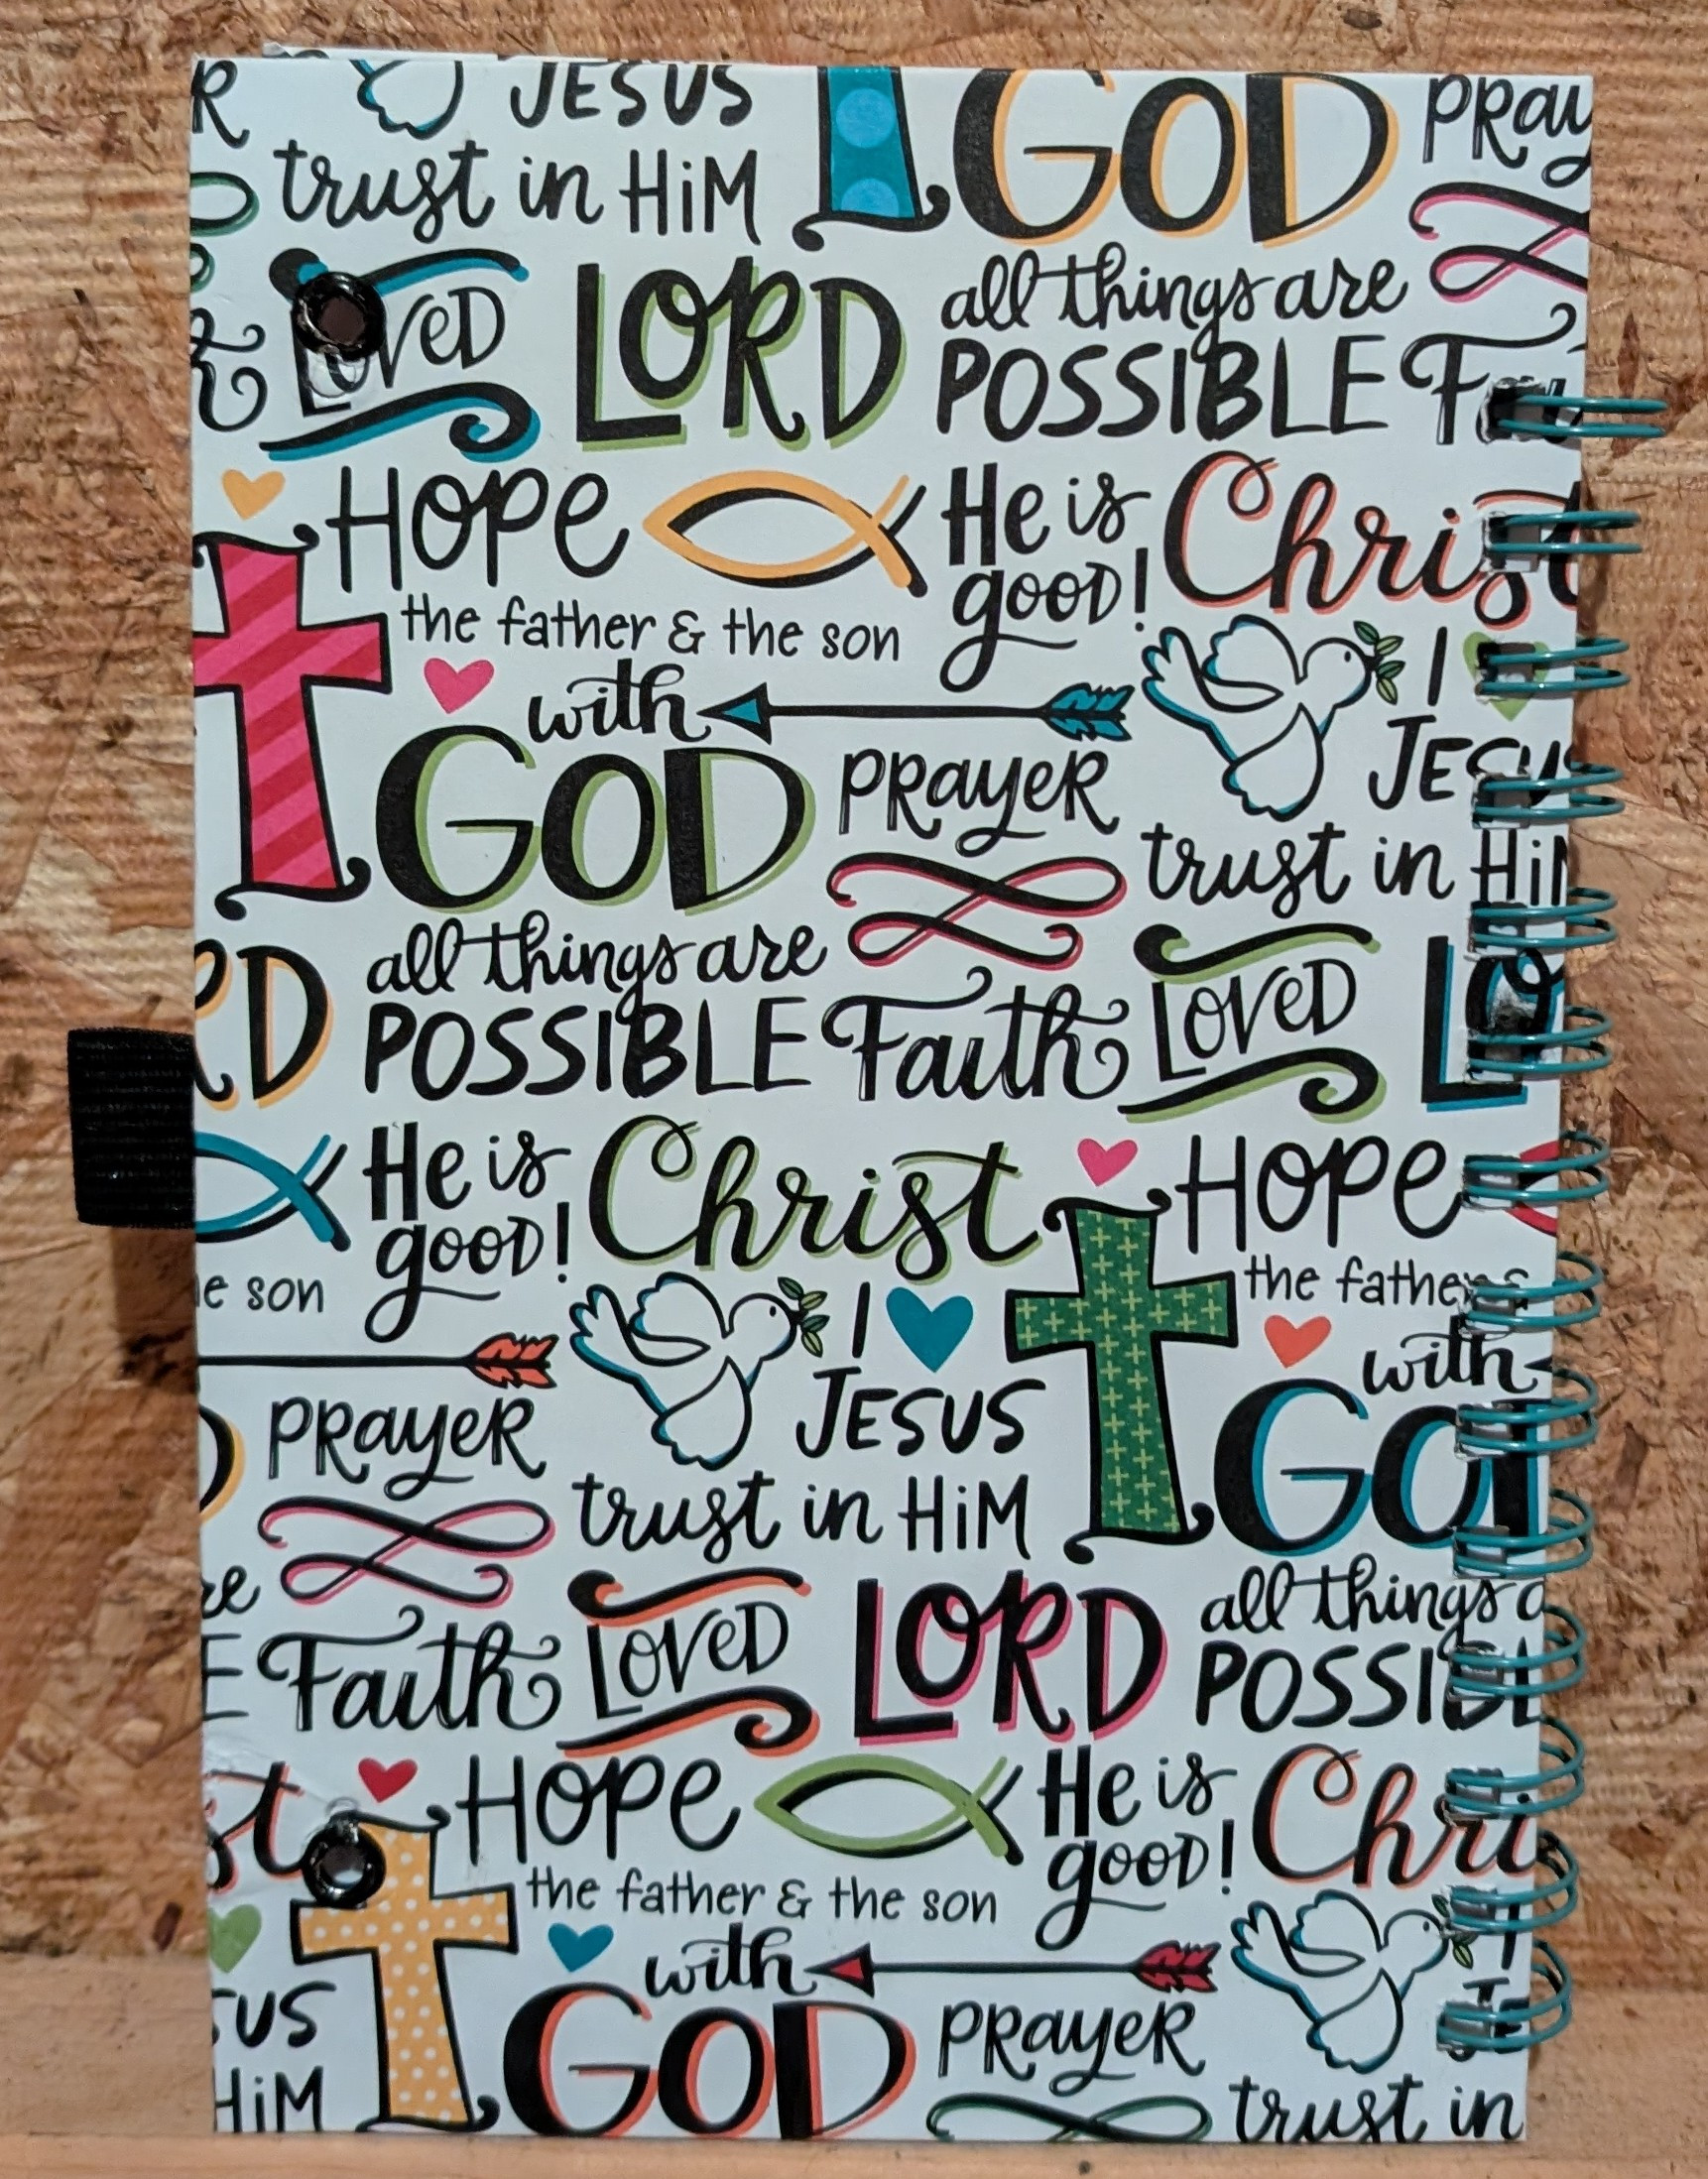 R JESUS GOD PRay
trust in HiM
Loved LORD all things are
POSSIBLE
HOPE He is Christ
good!
the father & the son
with I
GOD PRayeR JESUS
trust in HiM
RD all things are
POSSIBLE Faith Loved LO
He is Christ HOPE
good!
e son the father &
I with
PRayeR JESUS GOD
trust in HiM
re Loved LORD all things a
E Faith POSSIBL
st HOPE He is Chri
good!
the father & the son
with I
SUS GOD PRayeR
HiM trust in